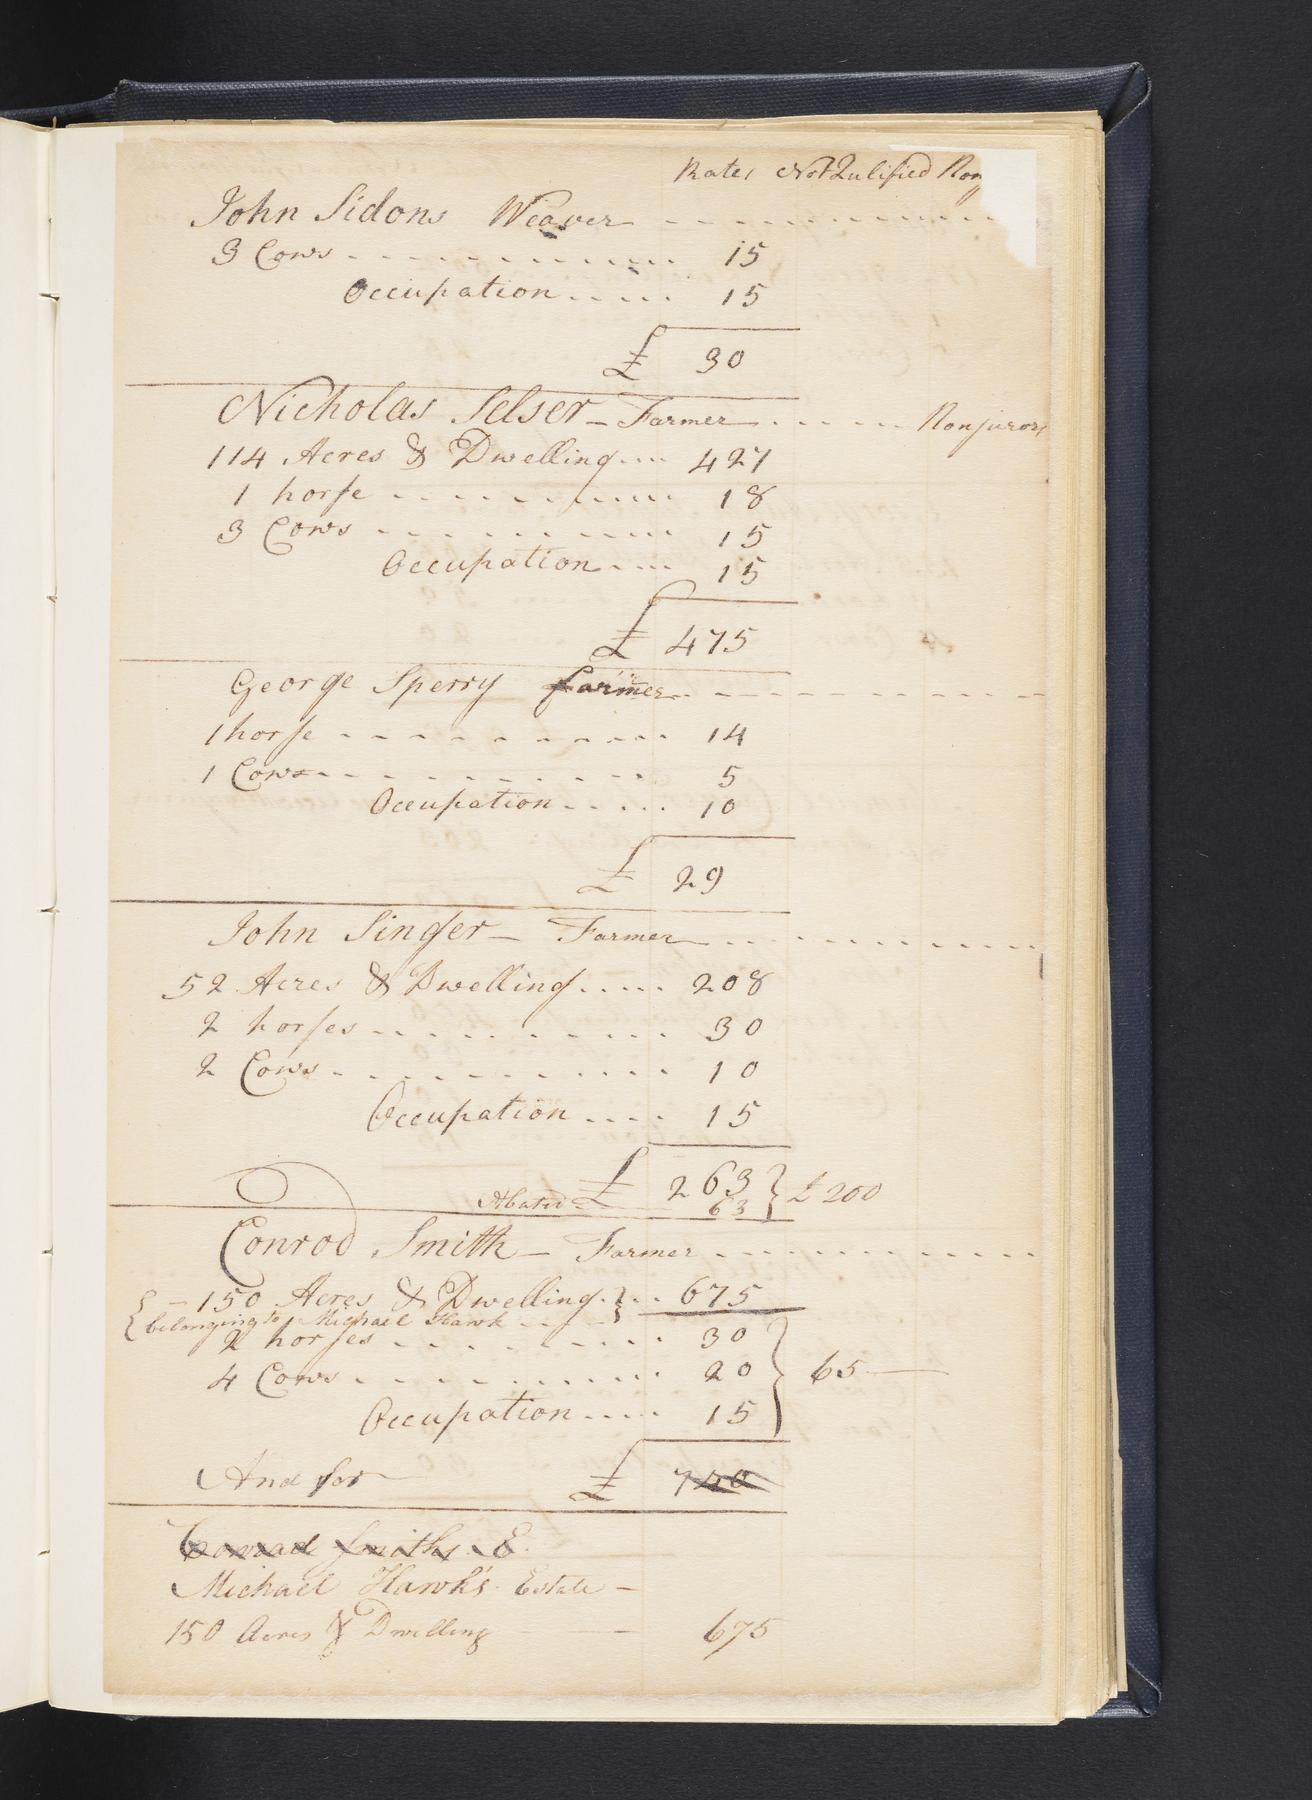 Rates Not Qulified Non
John Sidons Weaver
3 Cows 15
Occupation 15
£ 30
Nicholas Selser Farmer Nonjuror
114 Acres & Dwelling 427
1 horse 18
3 Cows 15
Occupation 15
£ 475
George Sperry farmer
1 horse 14
1 Cow 5
Occupation 10
£ 29
John Singer Farmer
52 Acres & Dwelling 208
2 horses 30
2 Cows 10
Occupation 15
£ 263 } £ 200
Abated 63
Conrod Smith Farmer
150 Acres & Dwelling 675
belonging to Michael Hawk
2 horses 30
4 Cows 20 } 65
Occupation 15
And for £ 740
Conrad Smiths E
Michael Hawk's Estate
150 Acres & Dwelling 675